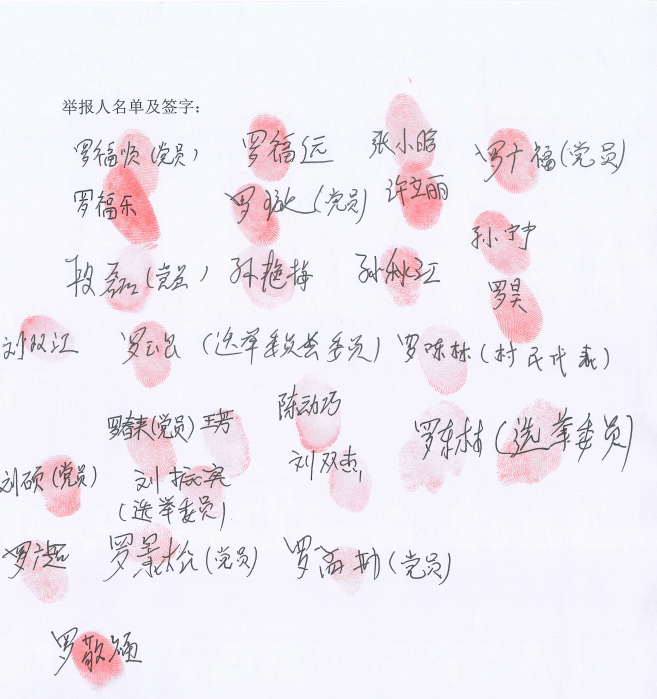 举报人名单及签字：
罗福顺（党员） 罗福远 张小晗 罗广福（党员）
罗福乐 罗 （党员） 许立丽
孙宁宁
段磊（党员） 孙艳梅 孙秋江
罗昊
刘双江 罗 （选举委员会委员） 罗陈林（村民代表）
陈动巧
罗春来（党员） 王芳
罗东林（选举委员）
刘双杰
刘硕（党员） 刘振宾
（选举委员）
罗 罗景松（党员） 罗 勤（党员）
罗敬硕